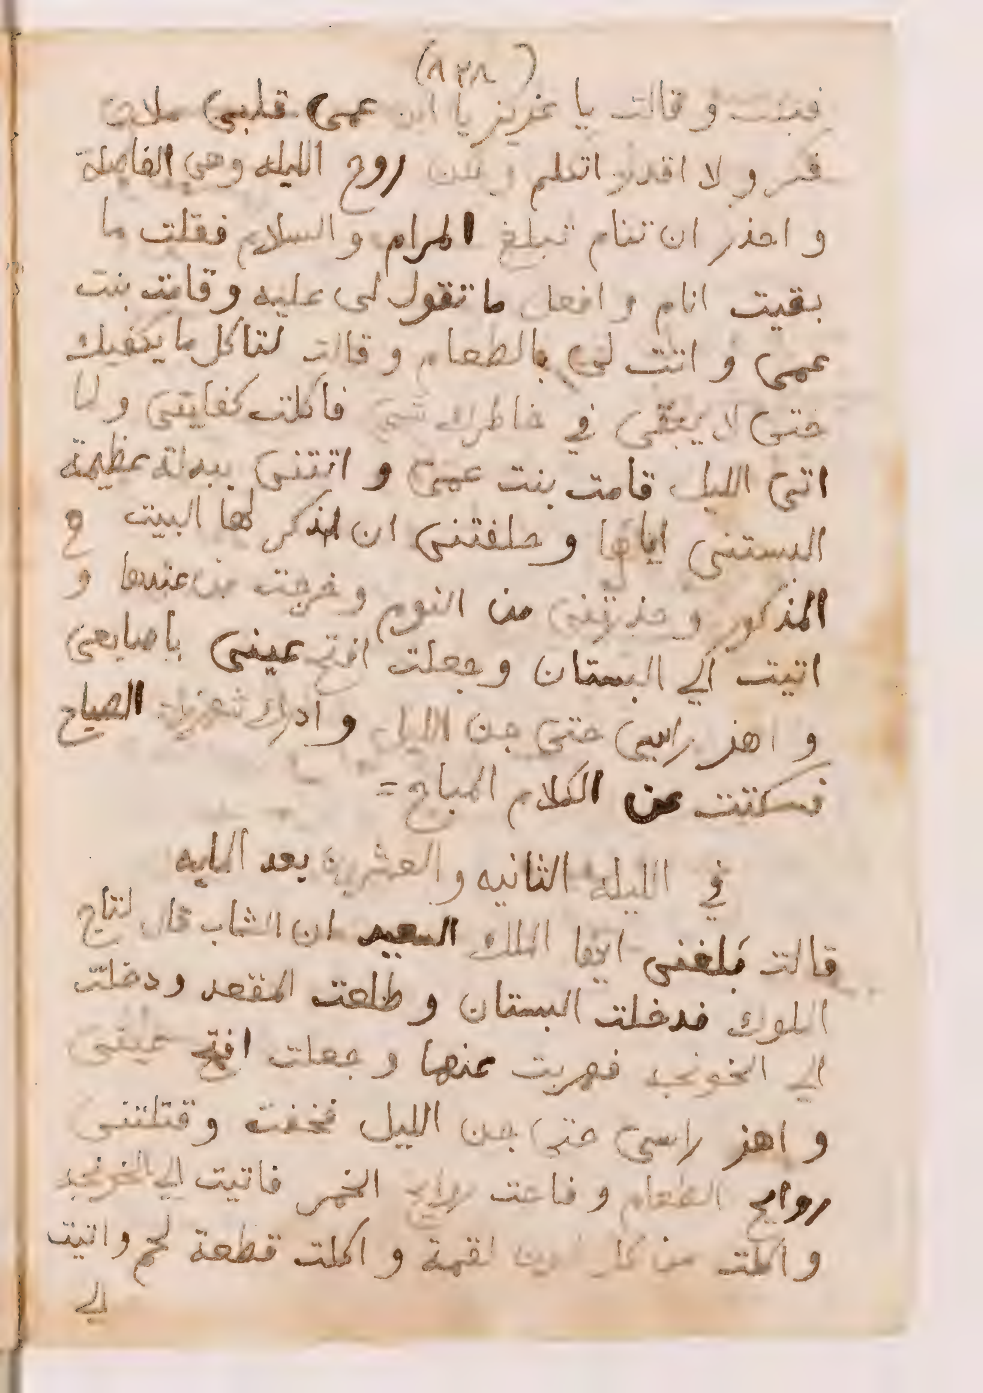 (٨٢٨)
فبكت و قالت يا عزيز يا ابن عمي قلبي ملان
فكر و لا اقدر اتكلم و لكن روح الليله وهي الفاصلة
و احذر ان تنام تبلغ المرام و السلام فقلت ما
بقيت انام و افعل ما تقول لى عليه و قامت بنت
عمى و اتت لى بالطعام و قالت لتاكل ما يكفيك
حتى لا يبقى في خاطرك شى فاكلت كفايتى و لما
اتى الليل قامت بنت عمى و اتتنى ببدلة عظيمة
البستنى اياها و حلفتنى ان اذكر لها البيت
المذكور و حذرتنى من النوم و خرجت من عندها و
اتيت الي البستان و جعلت افتح عينى باصابعى
و اهز راسى حتى جن الليل و ادرك شهرزاد الصباح
فسكتت عن الكلام المباح =
في الليله الثانيه و العشرين بعد المايه
قالت بلغنى ايها الملك السعيد ان الشاب قال لتاج
الملوك فدخلت البستان و طلعت المقعد و دخلت
الي الخونجه فهربت عنها و جعلت افتح عينى
و اهز راسى حتى جن الليل فخفت و قتلتنى
روايح الطعام و فاحت روايح الخمر فاتيت الي الخونجه
و اكلت من كل لون لقمة و اكلت قطعة لحم و اتيت
الي